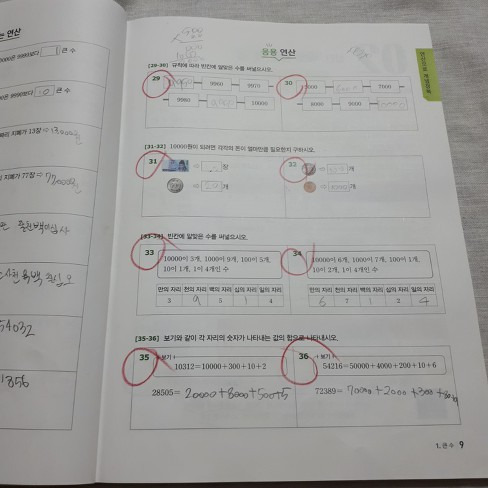 는 연산
00은 9990보다 1 큰 수
00은 9990보다 10 큰 수
짜리 지폐가 13장⇒
리 지폐가 77장⇒
54032
응용 연산
연산으로 개념잡기
[29-30] 규칙에 따라 빈칸에 알맞은 수를 써넣으시오.
29
9960
9970
30
7000
9980
10000
8000
9000
[31-32] 10000원이 되려면 각각의 돈이 얼마만큼 필요한지 구하시오.
31
⇒ 장
32
⇒ 개
⇒ 20 개
⇒ 개
[33-34] 빈칸에 알맞은 수를 써넣으시오.
33
10000이 3개, 1000이 9개, 100이 5개,
10이 1개, 1이 4개인 수
34
10000이 6개, 1000이 7개, 100이 1개,
10이 2개, 1이 4개인 수
만의 자리 천의 자리 백의 자리 십의 자리 일의 자리
3 9 5 1 4
만의 자리 천의 자리 백의 자리 십의 자리 일의 자리
6 7 1 2 4
[35-36] 보기와 같이 각 자리의 숫자가 나타내는 값의 합으로 나타내시오.
35
보기
10312=10000+300+10+2
36
보기
54216=50000+4000+200+10+6
28505= 20000+8000+500+5
72389= 70000+2000+300+
1. 큰 수 9